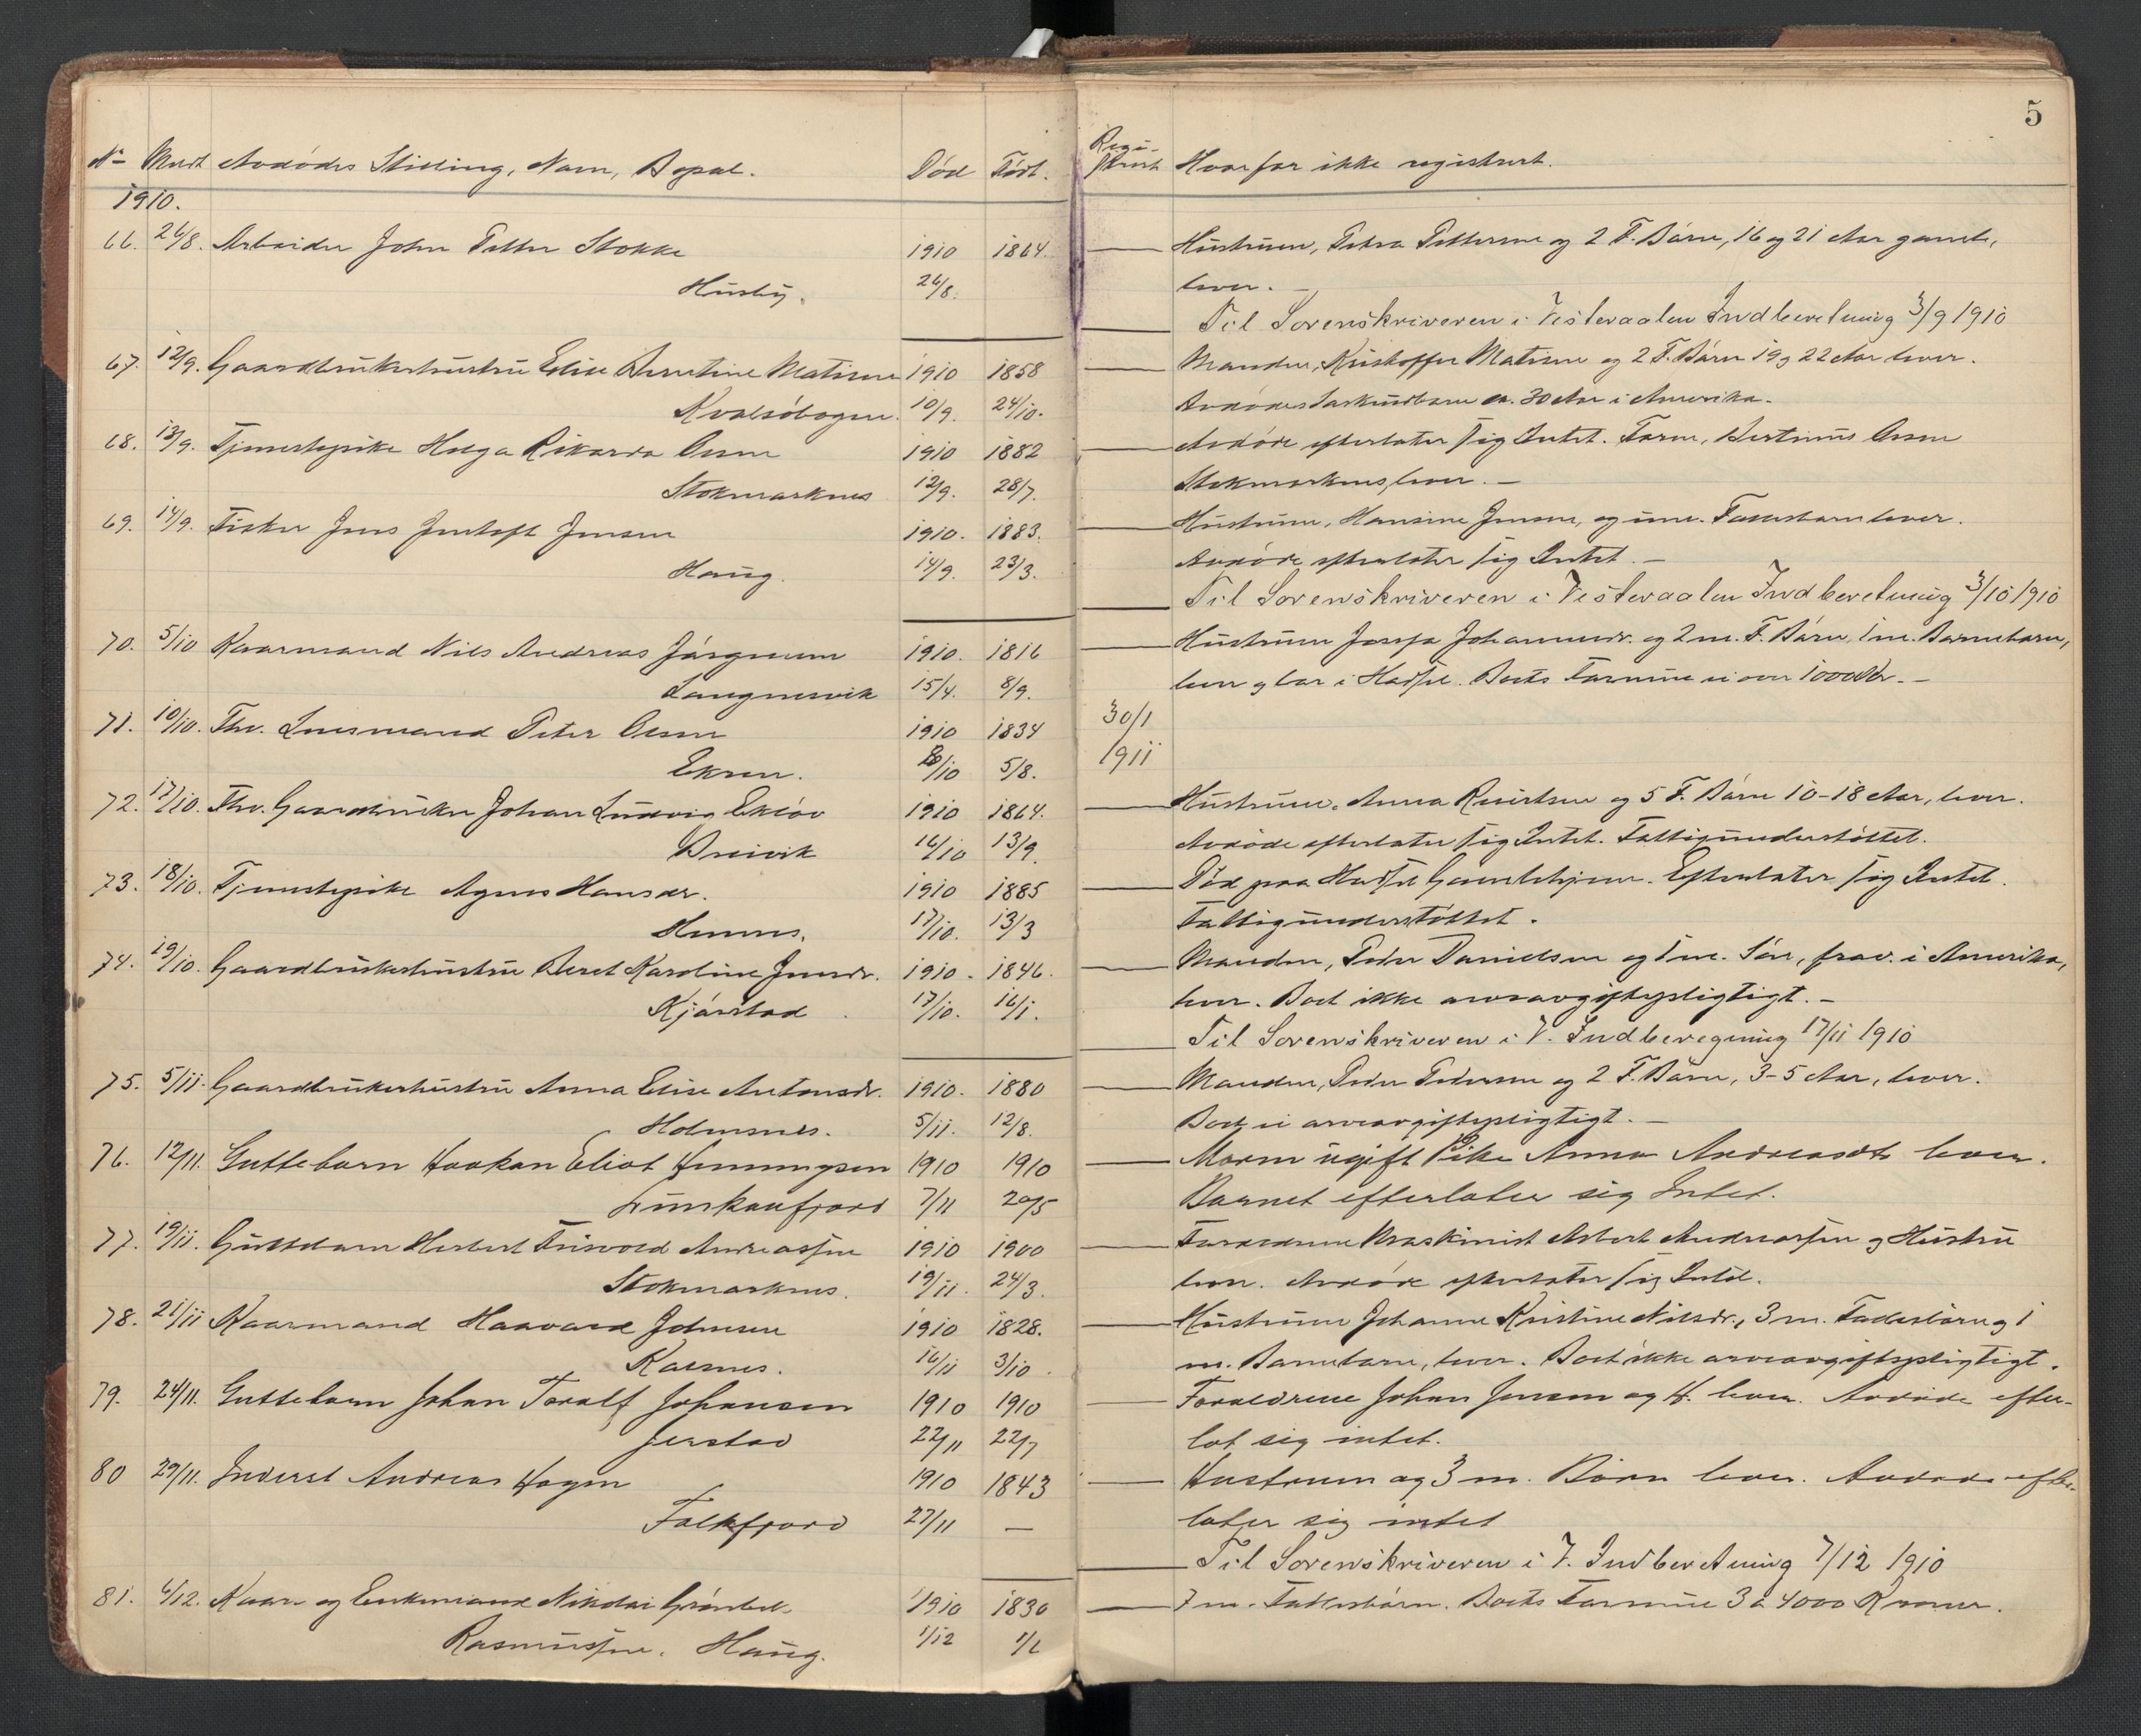 5
No Meldt Avdödes Stilling, Navn, Bopæl. Död Födt. Regi-strert Hvorfor ikke registrert.
1910.
66. 26/8. Arbeider John Petter Stokke 1910 1864. — Hustruen, Petra Pettersen og 2 F. Börn, 16 og 21 Aar gamle,
Husby. 26/8. lever. —
— Til Sorenskriveren i Vesteraalen Indberetning 3/9 1910
67. 12/9. Gaardbrukerhustru Elise Berntine Matisen 1910 1858 — Manden, Kristoffer Matisen og 2 F. Börn 19 og 22 Aar lever.
Kvalsöbogen. 10/9. 24/10. Avdödes Særkuldbarn ca. 30 Aar i Amerika.
68. 13/9. Tjenestepike Helga Rikarda Olsen 1910 1882 — Avdöde efterlater sig Intet. Faren, Bertinus Olsen
Stokmarknes 12/9. 28/7. Stokmarknes, lever. —
69. 14/9. Fisker Jens Jentoft Jensen 1910. 1883. — Hustruen, Hansine Jensen, og ume. Fællesbarn lever.
Haug. 14/9. 23/3. Avdöde efterlater sig Intet. —
— Til Sorenskriveren i Vesteraalen Indberetning 3/10 1910
70. 5/10 Kaarmand Nils Andreas Jörgensen 1910. 1816 — Hustruen Josefa Johannesdr. og 2 m. F. Börn, 1 m. Barnebarn,
Langnesvik 15/4. 8/9. lever og bor i Hadsel. Boets Formue ei over 1000 Kr. —
71. 10/10. Fhv. Lensmand Peter Olsen 1910 1834 30/1
Ekren. 8/10 5/8. 1911
72. 17/10. Fhv. Gaardbruker Johan Ludvig Eklöv 1910 1864. — Hustruen, Anna Knudtsen og 5 F. Börn 10-18 Aar, lever.
Breivik 16/10 13/9. Avdöde efterlater sig Intet. Fattigunderstöttet.
73. 18/10. Tjenestepike Agnes Hansdr. 1910 1885 — Död paa Hadsel Gamlehjem. Efterlater sig Intet.
Hennes. 17/10. 13/3 Fattigunderstöttet.
74. 19/10. Gaardbrukerhustru Beret Karoline Jensdr. 1910. 1846. — Manden, Peder Danielsen og 1 m. Sön, frav. i Amerika,
Kjörstad. 17/10. 16/1. lever. Boet ikke arveavgiftspligtigt. —
— Til Sorenskriveren i V. Indberegning 17/11 1910
75. 5/11. Gaardbrukerhustru Anna Elise Antonsdr. 1910. 1880 — Manden, Peder Pedersen og 2 F. Börn, 3-5 Aar, lever.
Holmsnes. 5/11. 12/8. Boet ei arveavgiftspligtigt. —
76. 12/11. Guttebarn Haakon Eliot Henningsen 1910 1910 — Moren ugift Pike Anna Andreasdtr lever.
Lunkanfjord 7/11 20/5 Barnet efterlater sig Intet.
77. 19/11. Guttebarn Herbert Trisvold Andreassen 1910 1900 — Forældrene Maskinist Albert Andreassen og Hustru
Stokmarknes. 19/11. 24/3. lever. Avdöde efterlater sig Intet.
78. 21/11 Kaarmand Haavard Johnsen 1910 1828. — Hustruen Johanne Kristine Nilsdr., 3 m. Fællesbörn og 1
Kalsnes. 16/11 3/10. m. Barnebarn, lever. Boet ikke arveavgiftspligtigt.
79. 24/11. Guttebarn Johan Toralf Johansen 1910 1910 — Forældrene Johan Jensen og H. lever. Avdöde efter-
Jerstad 22/11 22/7 lot sig intet.
80 29/11. Inderst Andreas Hagen 1910 1843 — Hustruen og 3 m. Börn lever. Avdöde efter-
Falkfjord 27/11 — later sig intet
— Til Sorenskriveren i V. Indberetning 7/12 1910
81. 6/12. Kaar- og Enkemand Nikolai Grönbek 1910 1830 — 7 m. Fællesbörn. Boets Formue 3 à 4000 Kroner.
Rasmussen. Haug. 1/12 1/6